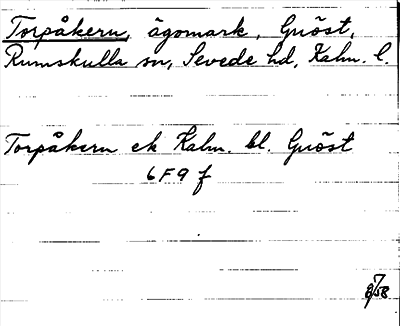 Torpåkern, ägomark, Gnöst,
Rumskulla sn, Sevede hd, Kalm. l.
Torpåkern ek Kalm. bl. Gnöst
6F9 f